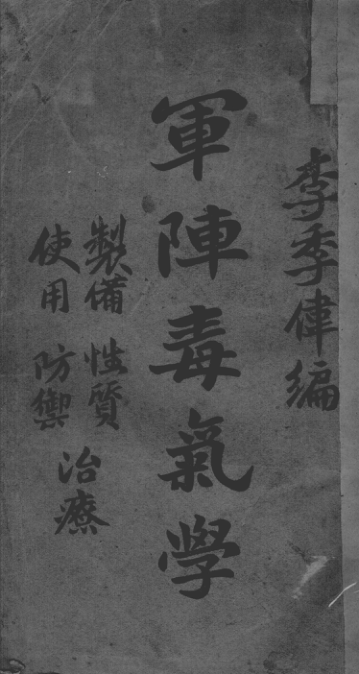 李季偉編
軍陣毒氣學
製備 性質
使用 防禦
治療